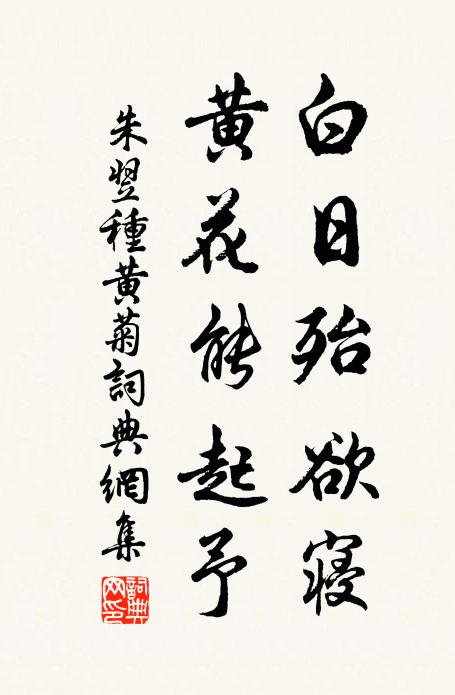 白日殆欲寢
黃花能起予
朱翌種黃菊詞典網集
詞典網印